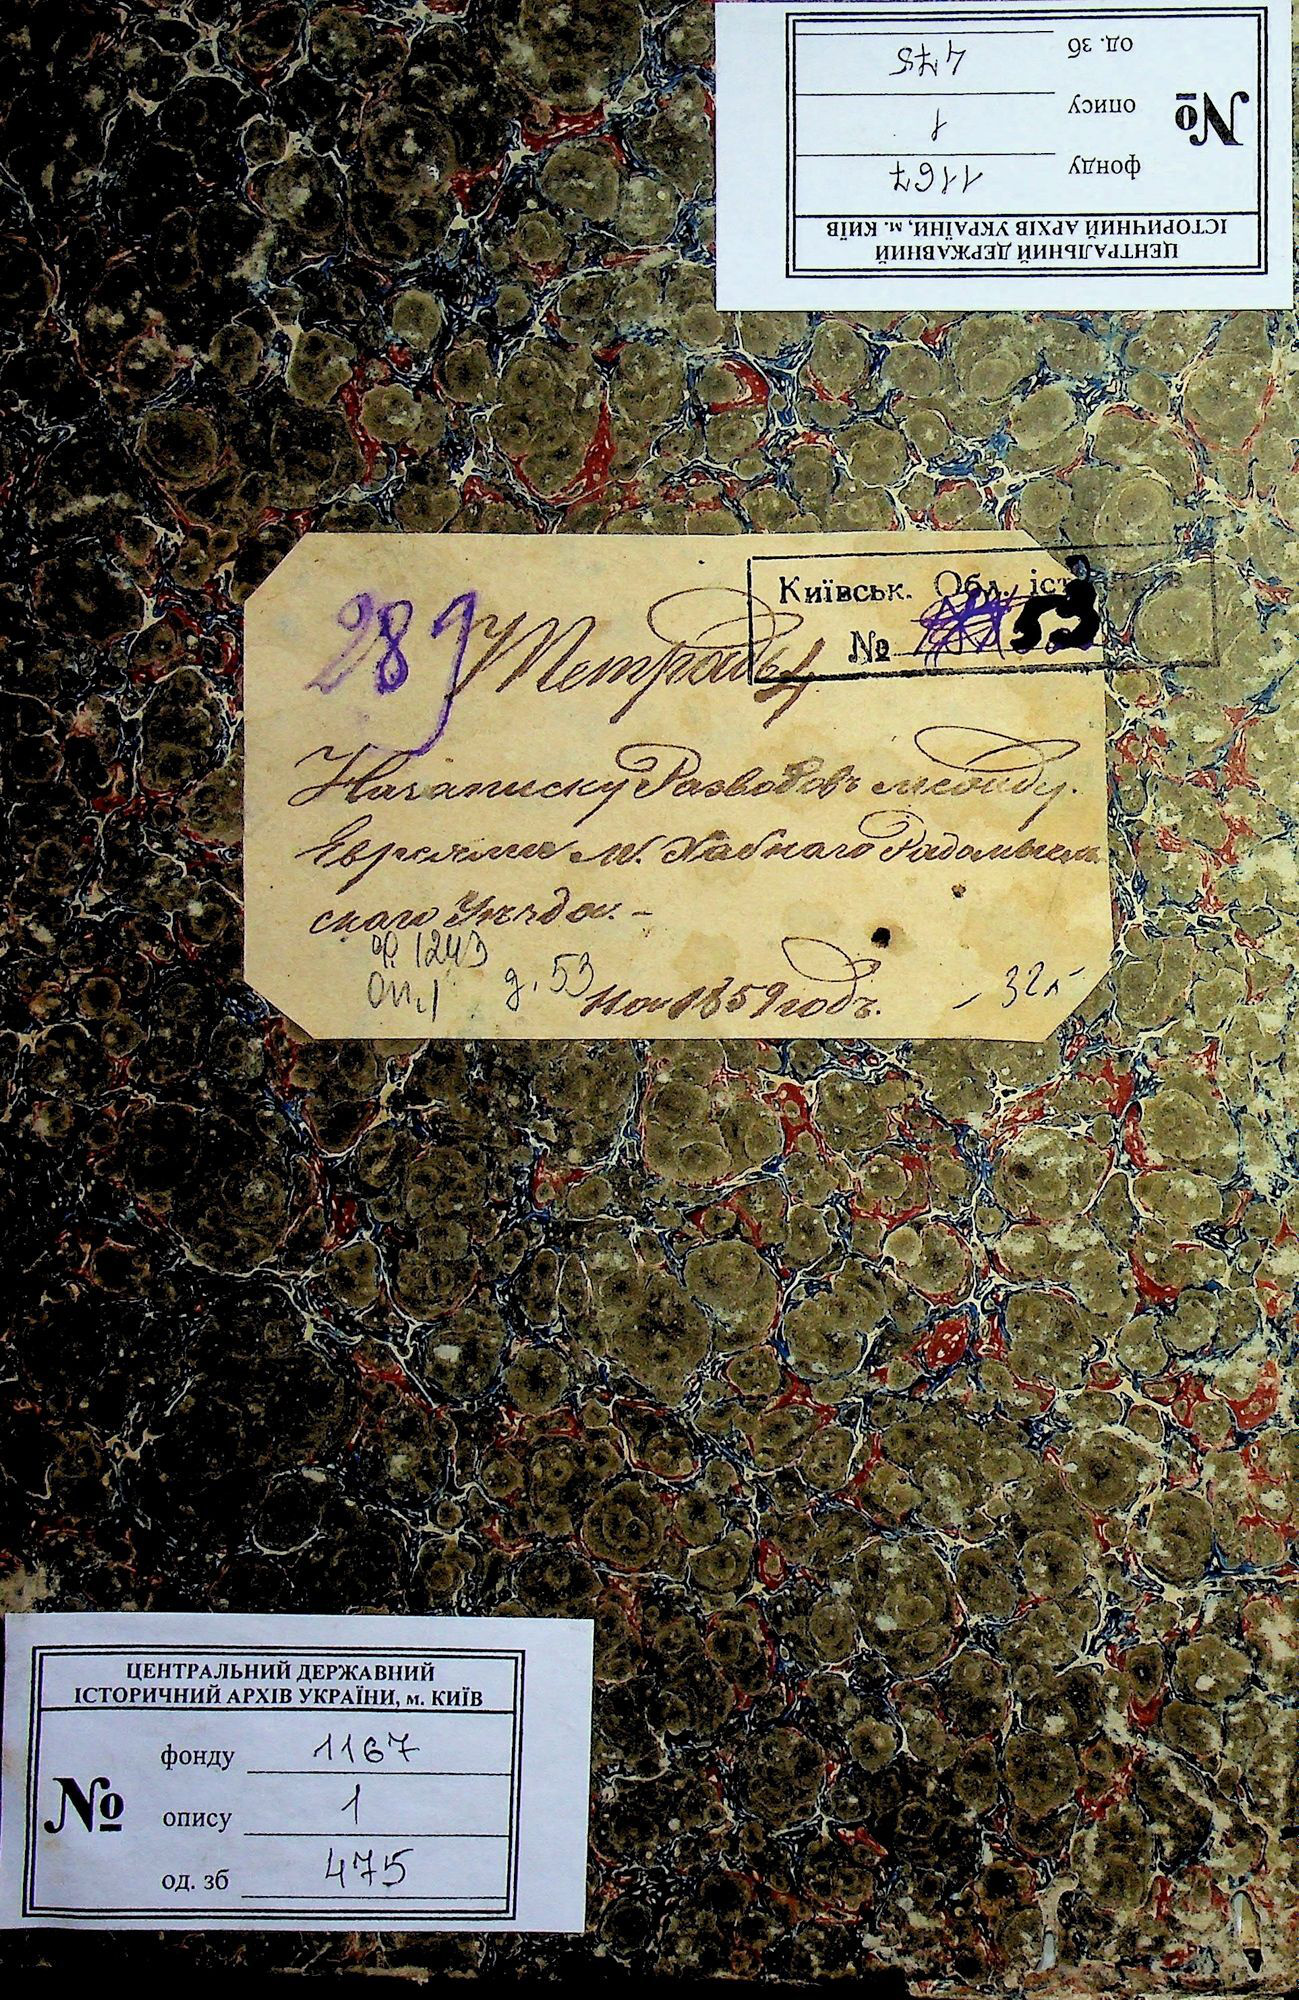 ЦЕНТРАЛЬНИЙ ДЕРЖАВНИЙ
ІСТОРИЧНИЙ АРХІВ УКРАЇНИ, м. КИЇВ
№
фонду 1167
опису 1
од. зб 475
Київськ. Обл. іст
№ 53
289
Тетрадь
Назаписку Разводовъ между
Евреями м. Хабнаго Радомысль
скаго Уѣзда. -
ф. 1243
Оп. 1
д. 53
На 1859 годъ.
- 32 л
ЦЕНТРАЛЬНИЙ ДЕРЖАВНИЙ
ІСТОРИЧНИЙ АРХІВ УКРАЇНИ, м. КИЇВ
№
фонду 1167
опису 1
од. зб 475